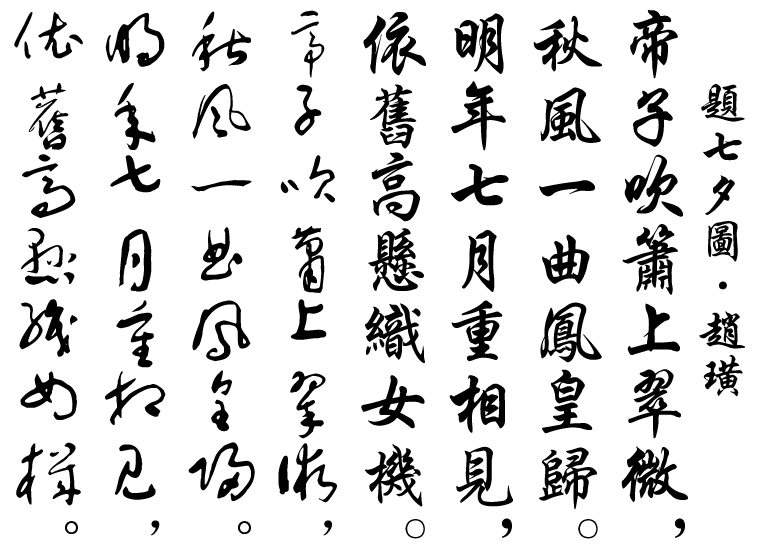 題七夕圖・趙璜
帝子吹簫上翠微，
秋風一曲鳳皇歸。
明年七月重相見，
依舊高懸織女機。
帝子吹簫上翠微，
秋風一曲鳳皇歸。
明年七月重相見，
依舊高懸織女機。